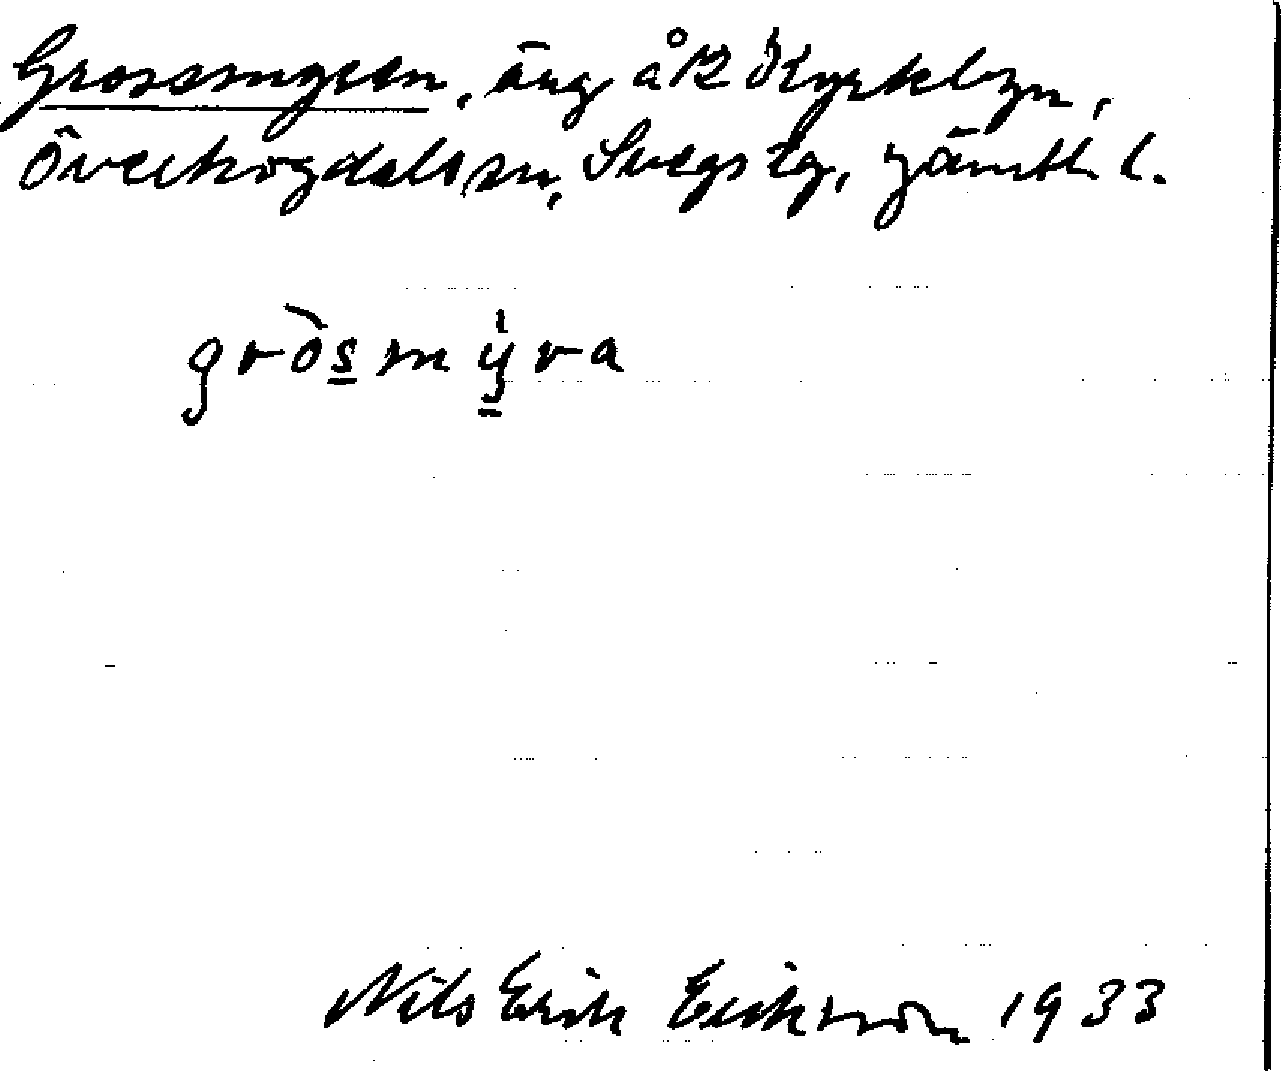 Grossmyren, äng å 12 Kyrkbyn,
Överhogdals sn, Svegs tg, Jämtl. l.
gròsmýra
Nils Erik Erikson 1933